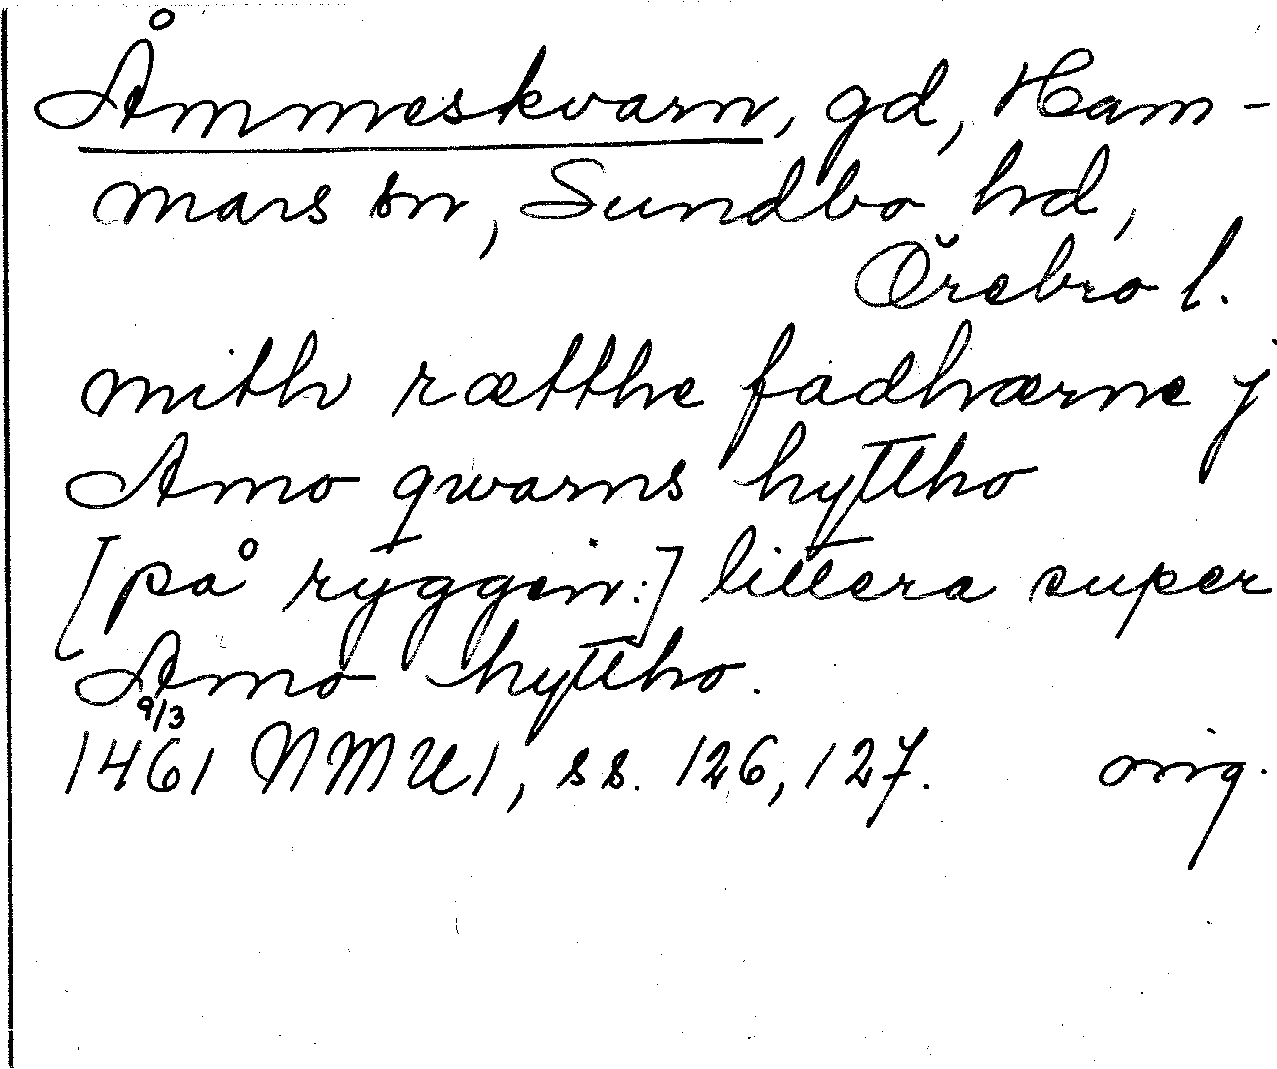 Åmmeskvarn, gd, Ham-
mars sn, Sundbo hd,
Örebro l.
mith rætthe fædhærne j
Amo qwarns hyttho
[på ryggen:] littera super
Amo hyttho.
9/3
1461 NMU1, ss. 126, 127. orig.